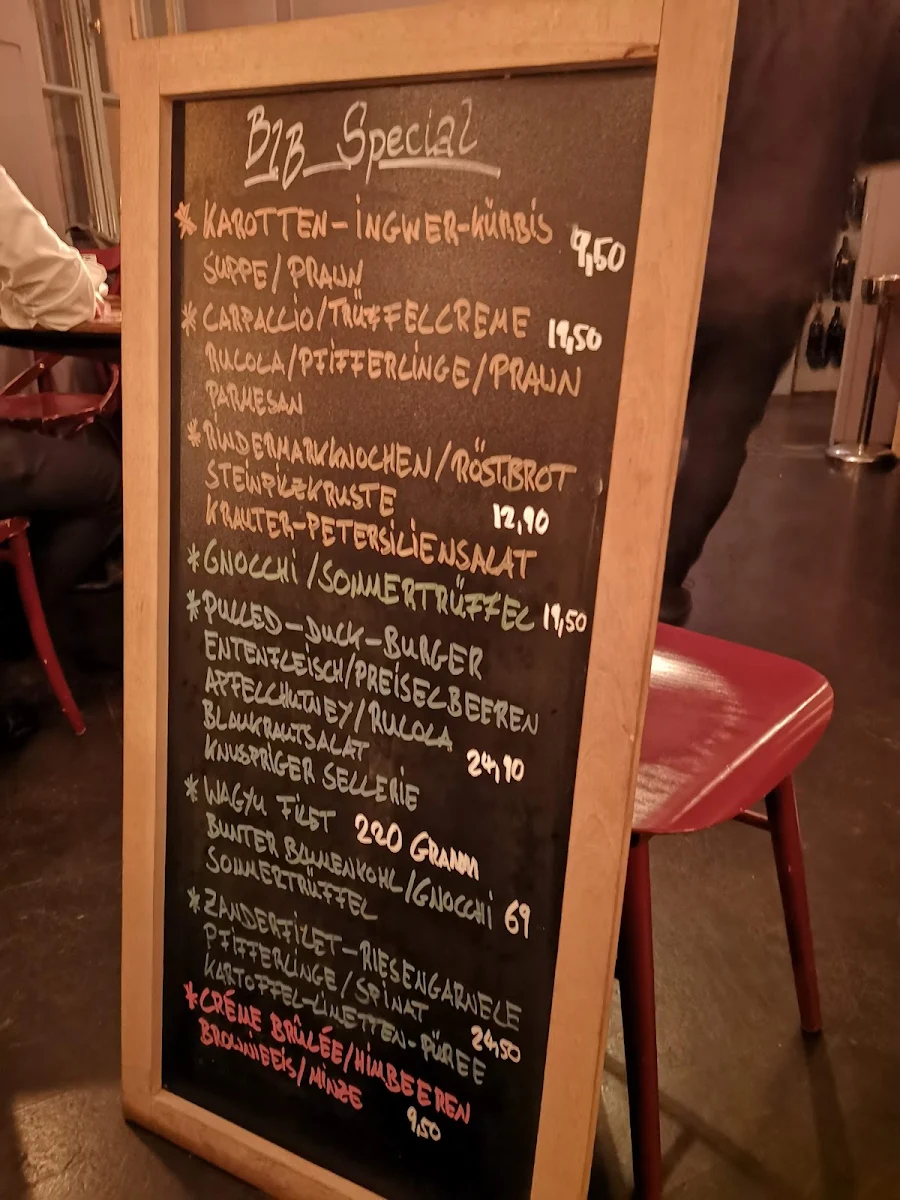 B2B Special
* KAROTTEN-INGWER-KÜRBIS 9,50
SUPPE/PRAWN
* CARPACCIO/TRÜFFELCREME 19,50
RUCOLA/PFIFFERLINGE/PRAWN
PARMESAN
* RINDERMARKKNOCHEN/RÖSTBROT
STEINPILZKRUSTE 12,90
KRÄUTER-PETERSILIENSALAT
* GNOCCHI/SOMMERTRÜFFEL 19,50
* PULLED-DUCK-BURGER
ENTENFLEISCH/PREISELBEEREN
APFELCHUTNEY/RUCOLA
BLAUKRAUTSALAT 24,90
KNUSPRIGER SELLERIE
* WAGYU FILET 220 GRAMM
BUNTER BLUMENKOHL/GNOCCHI 69
SOMMERTRÜFFEL
* ZANDERFILET-RIESENGARNELE
PFIFFERLINGE/SPINAT
KARTOFFEL-LIMETTEN-PÜREE 24,50
* CRÉME BRÛLÉE/HIMBEEREN
BROWNIEEIS/MINZE
9,50